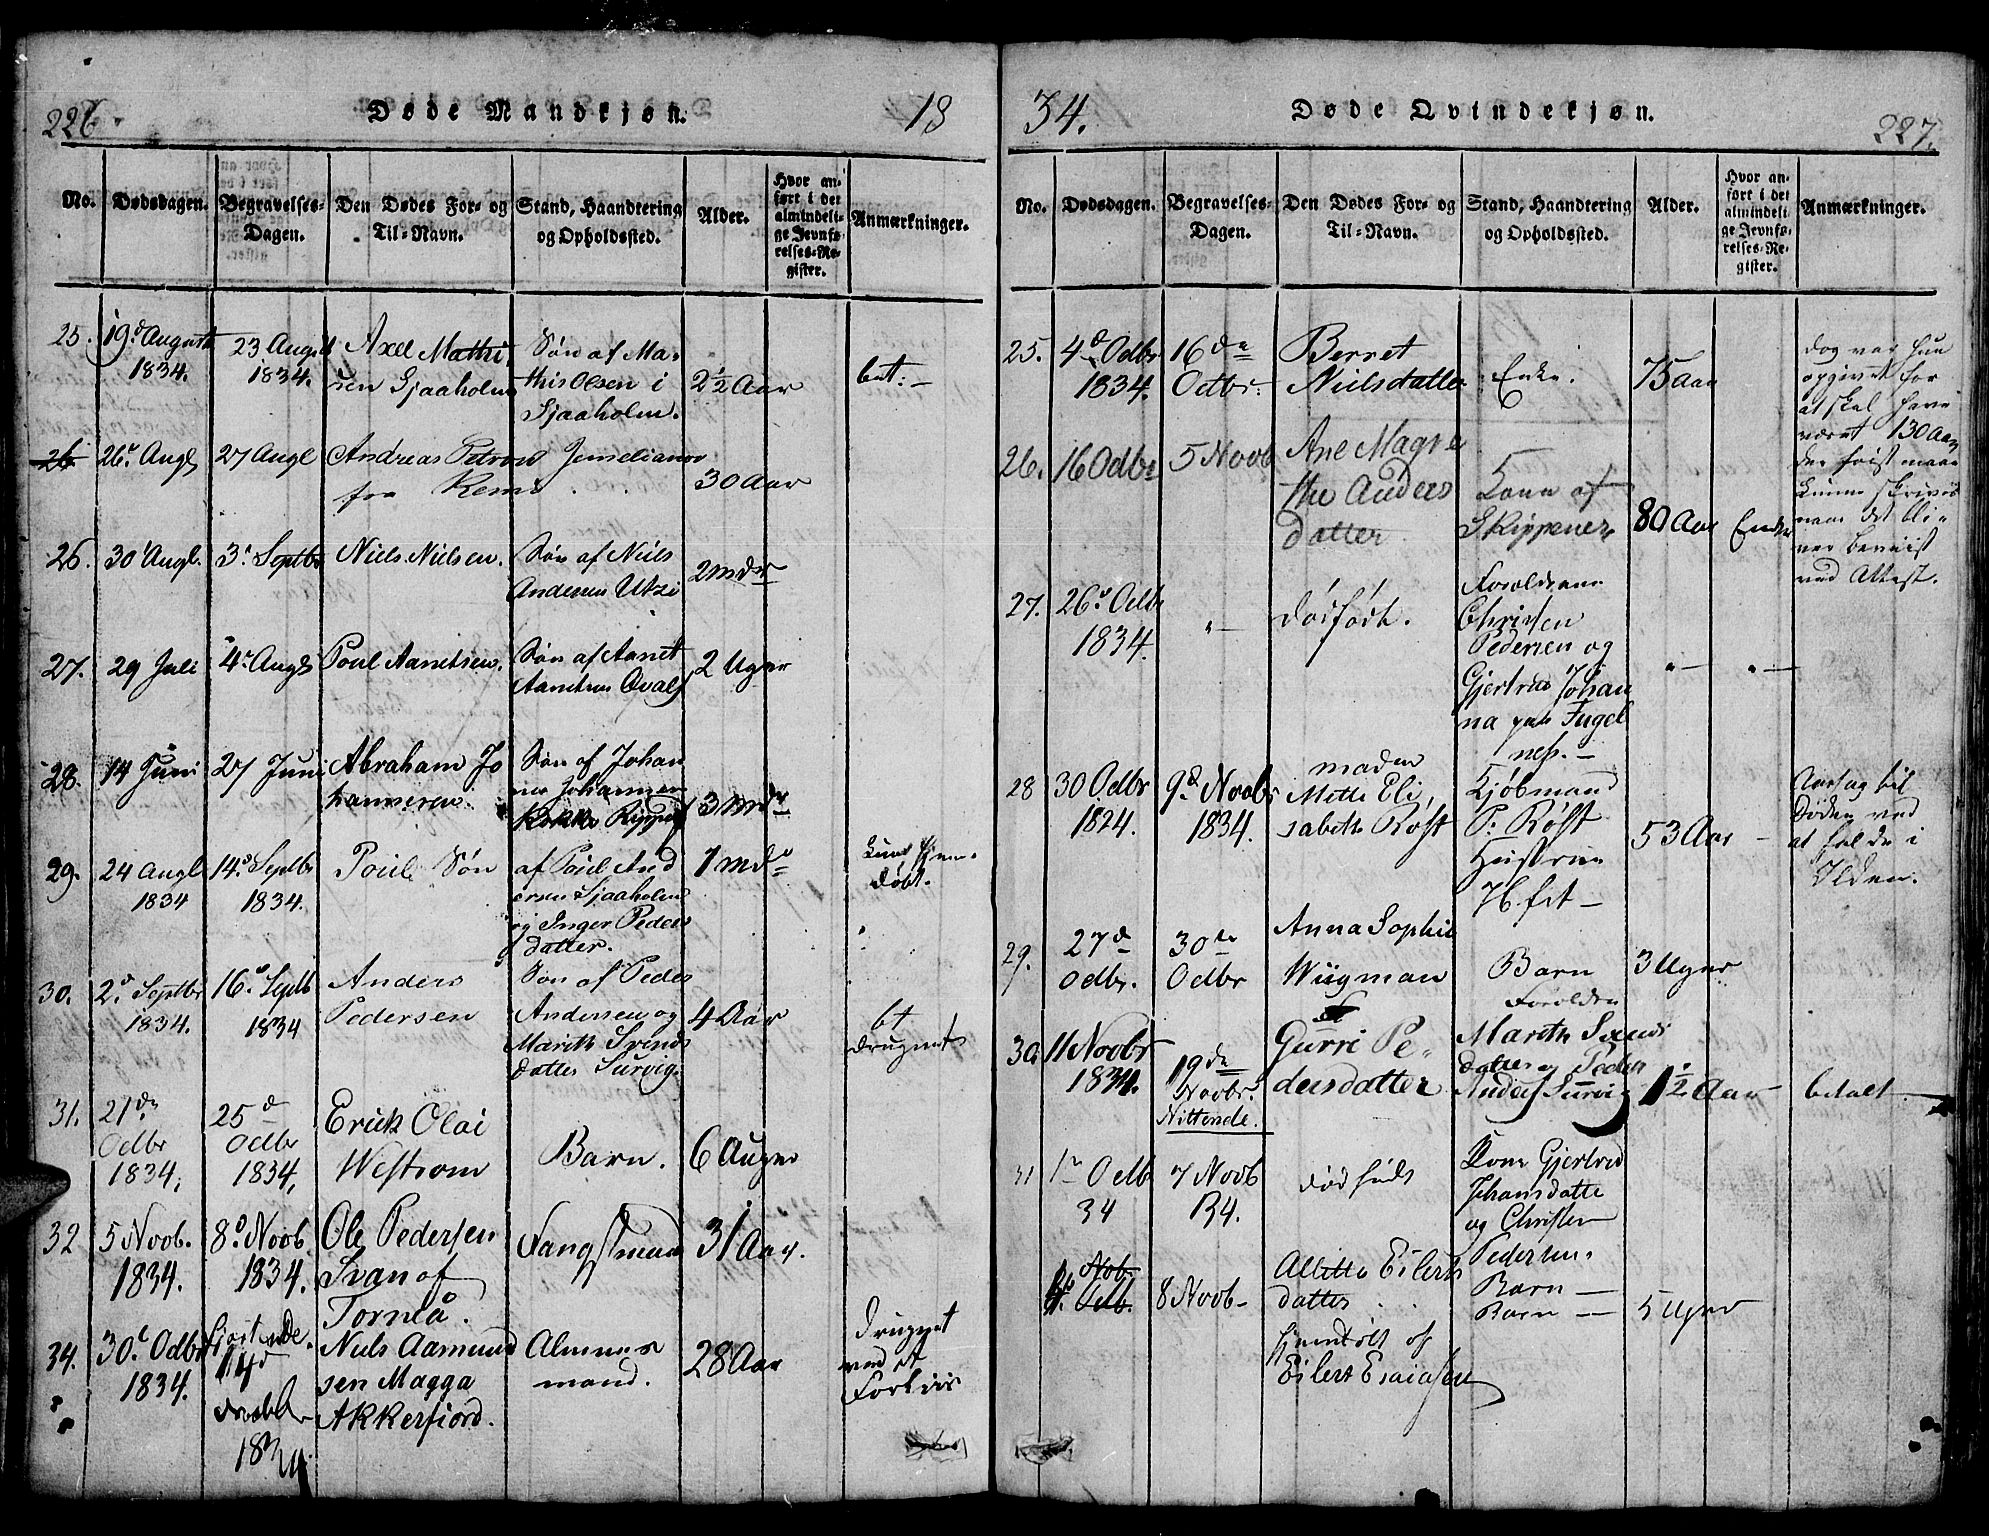 226.
Døde Mandkjøn.
18
No.
Dødsdagen.
Begravelses-
Dagen.
Den Dødes For- og
Til-Navn.
Stand, Haandtering
og Opholdssted.
Alder.
Hvor an-
ført i det
almindeli-
ge Jevnfø-
relses-Re-
gister.
Anmærkninger.
25. 19d August
1834.
23 Augst
1834.
Axel Mathi,
sen Sjaaholm
Søn af Ma-
this Olsen i
Sjaaholm.
2½ Aar
bet: -
26 26d Augs 27 Augl Andreas Petrow Jemelianov
fra Kem
30 Aar
26. 30 Augl. 3d Septbr Niels Nielsen.
Søn af Niels
Andersen Utzi
2 mdr
27. 29 Juli 4d Augs Poul Aanitsen.
Søn af Aanet
Aanitsen Qvals
2 Uger
28. 14 Juni 27 Juni Abraham Jo
hannesen.
Søn af Johan
nes Johannesen
3 mdr
29. 24 Augl
1834
14d Septbr
1834.
Poul Søn
af Poul And
ersen Sjaaholm
og Inger Peders
datter.
1 md
døbt.
30. 2d Septbr
1834.
16d Septb
1834
Anders
Pedersen
Søn af Peder
Andersen og
Marith Svends
datter Survig.
4 Aar
bt
druknet
31. 21de
Octbr
1834.
25d
Octbr
1834.
Erick Olai
Westrom
Barn.
6 Auger
32 5 Novb.
1834.
8d Novb.
1834.
Ole Pedersen
Svan af
Torneå.
Fangstmand
31 Aar.
34. 30d Octbr
1834.
fjortende.
14d
1834.
Niels Aamund
sen Magga
Akkerfiord.
Almues
mand.
28 Aar
Druknet
ved et
Forliis
34.
Døde Qvindekjøn.
227.
No.
Dødsdagen.
Begravelses-
Dagen.
Den Dødes For- og
Til-Navn.
Stand, Haandtering
og Opholdssted.
Alder.
Hvor an-
ført i det
almindeli-
ge Jevnfø-
relses-Re-
gister.
Anmærkninger.
25. 4d Octbr
1834.
16de
Octbr.
Berret
Nielsdatter
Enke.
75 Aar
dog var hun
opgivet for
at skal have
været 130 Aar
der først maae
kunne skrives
naar det bli-
ver beviist
ved Attest.
26. 16 Octbr 5 Novb
Ane Magre
the Anders
datter
Kone af
Skippener
80 Aar
27. 26d Octb
1834.
"-
dødfødt.
Forældrene
Christen
Pedersen og
Gjertrud Johan
na paa Fugel
nes. -
"- "-
28 30 Octbr
1824.
9d Novbr
1834.
maden
Mette Eli,
sabeth Røst
Kjøbmand
P: Røst
Hustrue
H.fest -
53 Aar -
døden ved
at falde i
Ilden.
29. 27d
Octbr.
30te
Octbr
Anna Sophie
Wiigman
Barn
3 Uger
30. 11 Novbr
1834.
19de
Novbr.
Nittende.
Gurri Pe-
dersdatter
Forælden
Marith Svends
datter og Peder
Anders Survig
1½ Aar
betalt.
31 1n Octb
34
7 Novb
134.
dødfødt
Kone Gjertrud
Johansdatte
og Christen
Pedersen.
Barn -
Novb.
Octb. 8 Novb -
Allette Eilerts
datter
hjemdøbt af
Eilert Esaiasen
Barn -
5 Uger